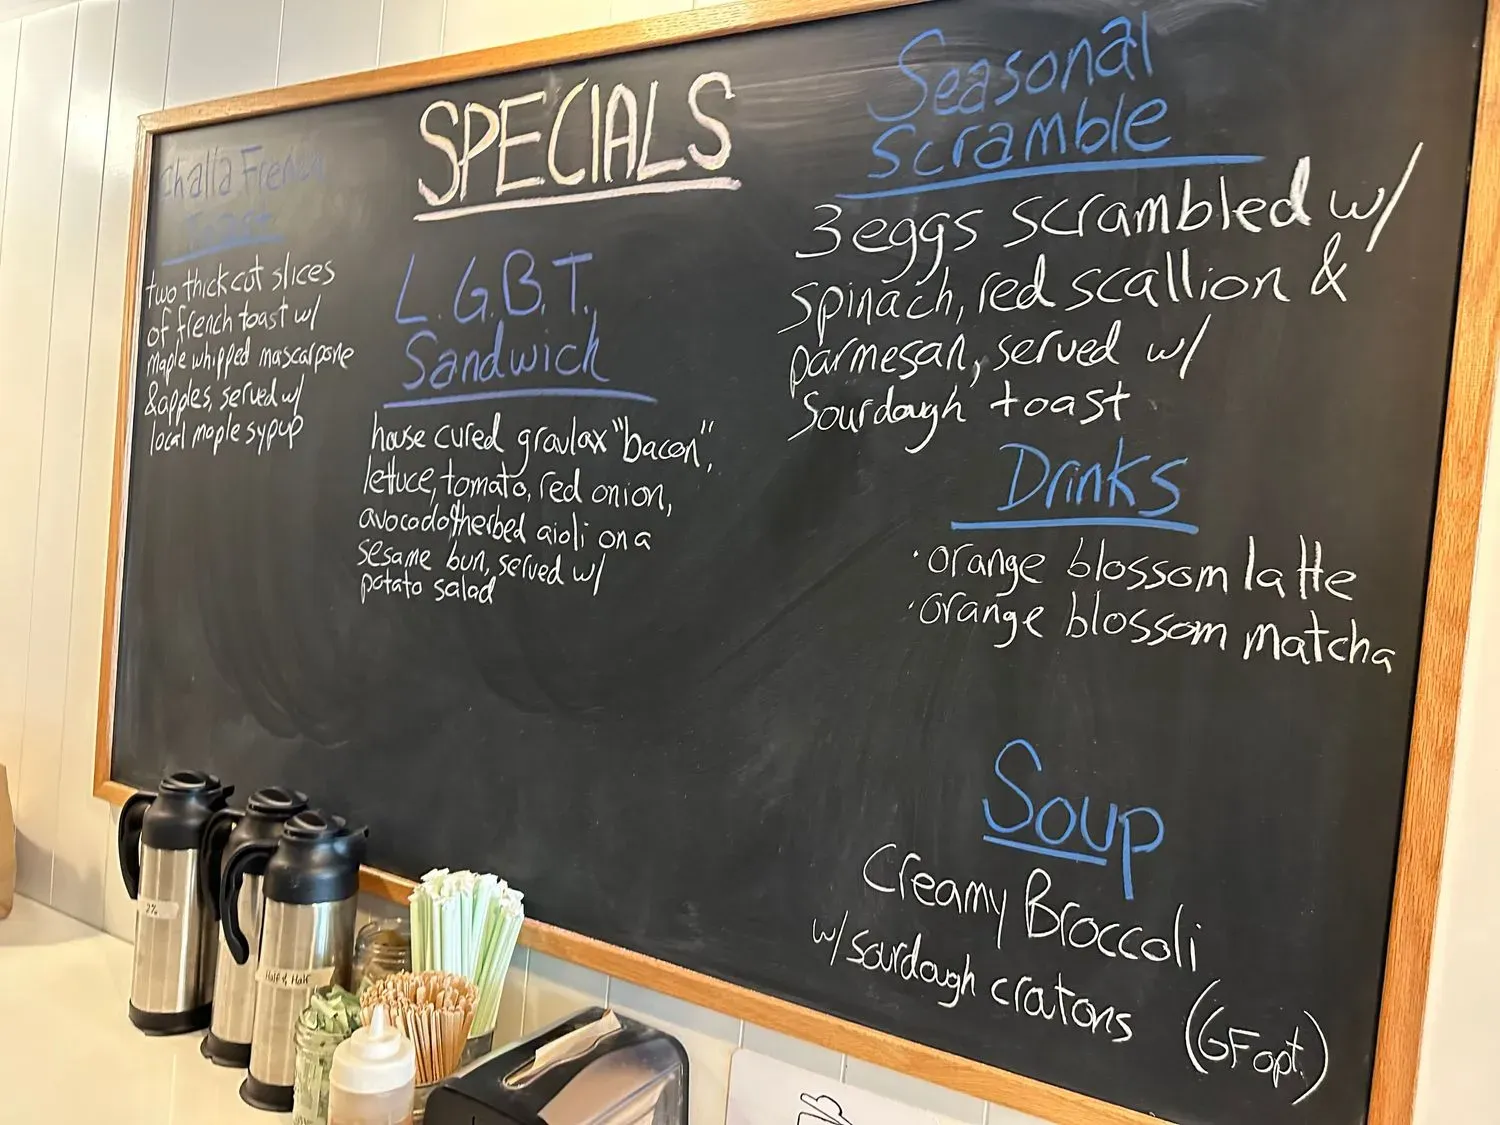 SPECIALS
Challa French
Toast
two thick cut slices
of french toast w/
maple whipped mascarpone
& apples, served w/
local maple syrup
L.G.B.T.
Sandwich
house cured gravlax "bacon",
lettuce, tomato, red onion,
avocado & herbed aioli on a
sesame bun, served w/
potato salad
Seasonal
Scramble
3 eggs scrambled w/
spinach, red scallion &
parmesan, served w/
sourdough toast
Drinks
· orange blossom latte
· orange blossom matcha
Soup
Creamy Broccoli
w/ sourdough cratons
(GF opt.)
2%
Half & Half